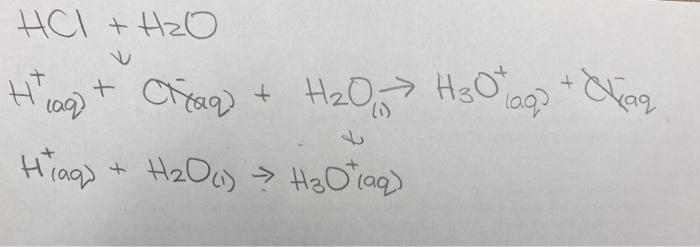 HCl + H2O
↓
H+(aq) + Cl-(aq) + H2O(l) → H3O+(aq) + Cl-aq
↓
H+(aq) + H2O(l) → H3O+(aq)